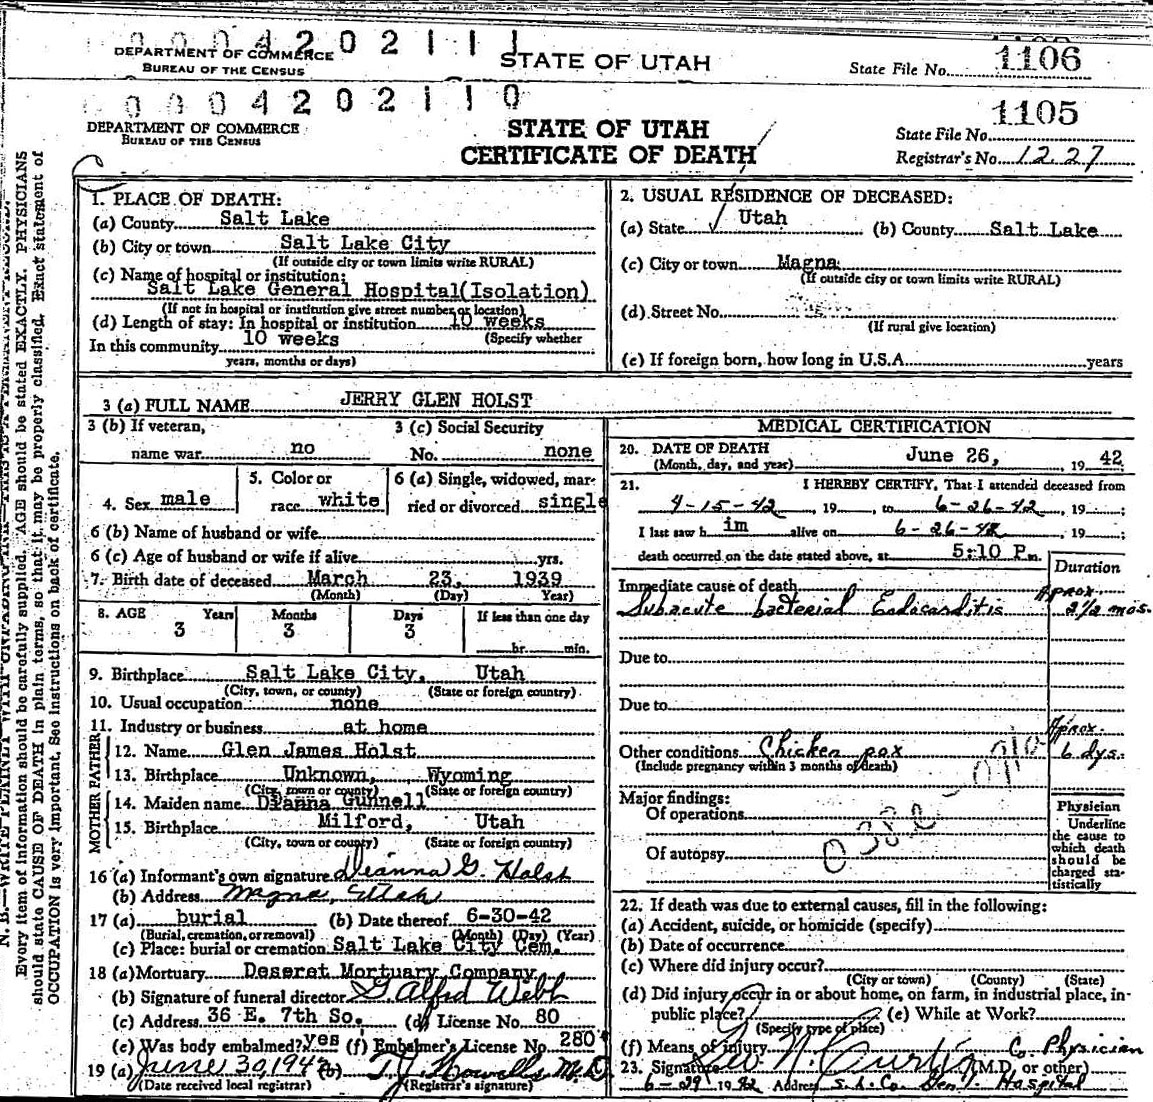 0 0 0 4 2 0 2 1 1 1
DEPARTMENT OF COMMERCE STATE OF UTAH State File No. 1106
BUREAU OF THE CENSUS
0 0 0 4 2 0 2 1 1 0
DEPARTMENT OF COMMERCE STATE OF UTAH State File No. 1105
BUREAU OF THE CENSUS CERTIFICATE OF DEATH Registrar's No. 1227
N. B.—WRITE PLAINLY WITH UNFADING INK—THIS IS A PERMANENT RECORD.
Every item of information should be carefully supplied. AGE should be stated EXACTLY. PHYSICIANS
should state CAUSE OF DEATH in plain terms, so that it may be properly classified. Exact statement of
OCCUPATION is very important. See instructions on back of certificate.
1. PLACE OF DEATH:
(a) County Salt Lake
(b) City or town Salt Lake City
(If outside city or town limits write RURAL)
(c) Name of hospital or institution:
Salt Lake General Hospital(Isolation)
(If not in hospital or institution give street number or location)
(d) Length of stay: In hospital or institution 10 weeks
(Specify whether
In this community 10 weeks
years, months or days)
2. USUAL RESIDENCE OF DECEASED:
(a) State Utah (b) County Salt Lake
(c) City or town Magna
(If outside city or town limits write RURAL)
(d) Street No.
(If rural give location)
(e) If foreign born, how long in U.S.A. years
3 (a) FULL NAME JERRY GLEN HOLST
3 (b) If veteran, 3 (c) Social Security
name war no No. none
4. Sex male 5. Color or race white 6 (a) Single, widowed, married or divorced single
6 (b) Name of husband or wife
6 (c) Age of husband or wife if alive yrs.
7. Birth date of deceased March 23, 1939
(Month) (Day) (Year)
8. AGE Years Months Days If less than one day
3 3 3 hr. min.
9. Birthplace Salt Lake City, Utah
(City, town, or county) (State or foreign country)
10. Usual occupation none
11. Industry or business at home
FATHER
12. Name Glen James Holst
13. Birthplace Unknown, Wyoming
(City, town or county) (State or foreign country)
MOTHER
14. Maiden name Dianna Gunnell
15. Birthplace Milford, Utah
(City, town or county) (State or foreign country)
16 (a) Informant's own signature Dianna G. Holst
(b) Address Magna, Utah
17 (a) burial (b) Date thereof 6-30-42
(Burial, cremation, or removal) (Month) (Day) (Year)
(c) Place: burial or cremation Salt Lake City Cem.
18 (a) Mortuary Deseret Mortuary Company
(b) Signature of funeral director G. Alfred Webb
(c) Address 36 E. 7th So. (d) License No. 80
(e) Was body embalmed? yes (f) Embalmer's License No. 280
19 (a) June 30, 1942 (b) T. J. Howells M.D.
(Date received local registrar) (Registrar's signature)
MEDICAL CERTIFICATION
20. DATE OF DEATH
(Month, day, and year) June 26, , 19 42
21. I HEREBY CERTIFY, That I attended deceased from
4-15-42, 19 , to 6-26-42, 19 ;
I last saw h im alive on 6-26-42, 19 ;
death occurred on the date stated above, at 5:10 P m.
Duration
Immediate cause of death Aprox.
Subacute bacterial Endocarditis 2½ mos.
Due to
Due to
Aprox.
Other conditions Chicken pox 6 dys.
(Include pregnancy within 3 months of death)
Major findings:
Of operations
Of autopsy
Physician
Underline
the cause to
which death
should be
charged sta-
tistically
22. If death was due to external causes, fill in the following:
(a) Accident, suicide, or homicide (specify)
(b) Date of occurrence
(c) Where did injury occur?
(City or town) (County) (State)
(d) Did injury occur in or about home, on farm, in industrial place, in-
public place? (e) While at Work?
(Specify type of place)
(f) Means of injury Co. Physician
23. Signature N. Curtis (M.D. or other)
6-29 1942 Address S. L. Co. Gen'l. Hospital